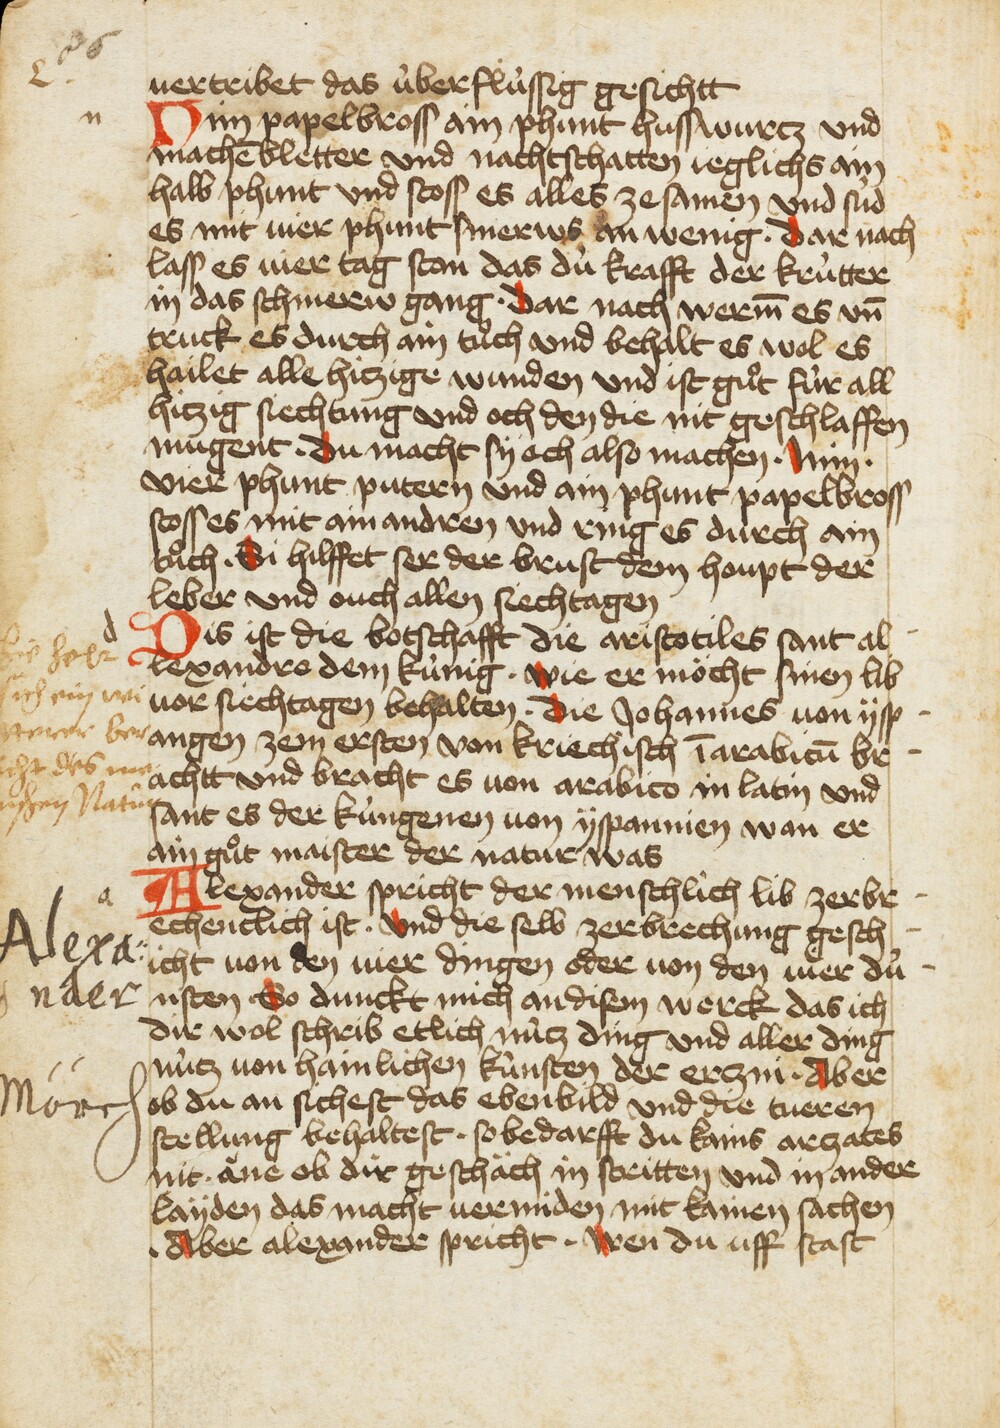 uertribet das úberflússig gesichtt
n
Nim papelbross ain phunt husswurcz vnd
machē bletter vnd nachtschatten ieglichs ain
halb phunt vnd stoss es alles ze samen vnd súd
es mit uier phunt smerws an wenig · Dar nach
lass es uier tag stan das dú krafft der krútter
in das schmerw gang · Dar nach werm̄ es vn̄
truck es durch ain tůch vnd behalt es wol es
hailet alle hitzige wunden vnd ist gůt fúr all
hitzig siechtung vnd och den die nit geschlaffen
mugent · Du macht sÿ och also machen · Nim ·
vier phunt putern vnd ain phunt papelbross
stoss es mit ain andren vnd ring es durch ain
tůch · Si hilffet ser der brust dem houpt der
leber vnd ouch allen siechtagen
d
Dis ist die botschafft die aristotiles sant al
lexandro dem kúnig · wie er mőcht sinen lib
uor siechtagen behalten · Die Johannes uon ÿsp
angen zem ersten von kriechisch ī arabicū br
achtt vnd bracht es uon arabico in latin vnd
sant es der kúngenen uon ÿspannien wan er
ain gůt maister der natur was
a
Alexander spricht der menschlich lib zerbr
echenclich ist · Vnd die selb zerbrechung gesch
icht uon den uier dingen oder uon den uier dú
nsten So dunckt mich an disem werck das ich
dir wol schrib etlich nútz ding vnd aller ding
nútz uon hainlichen kúnsten der erczni · Aber
ob du an sichest das ebenbild vnd die tueren
stellung behaltest · so bedarfft du kains arczates
nit · ăne ob dir geschăch in stritten vnd in ander
laÿden das macht uermiden mit kainen sachen
· Aber alexander spricht · Wen du uff stast
Alexa:
nder
Mörch